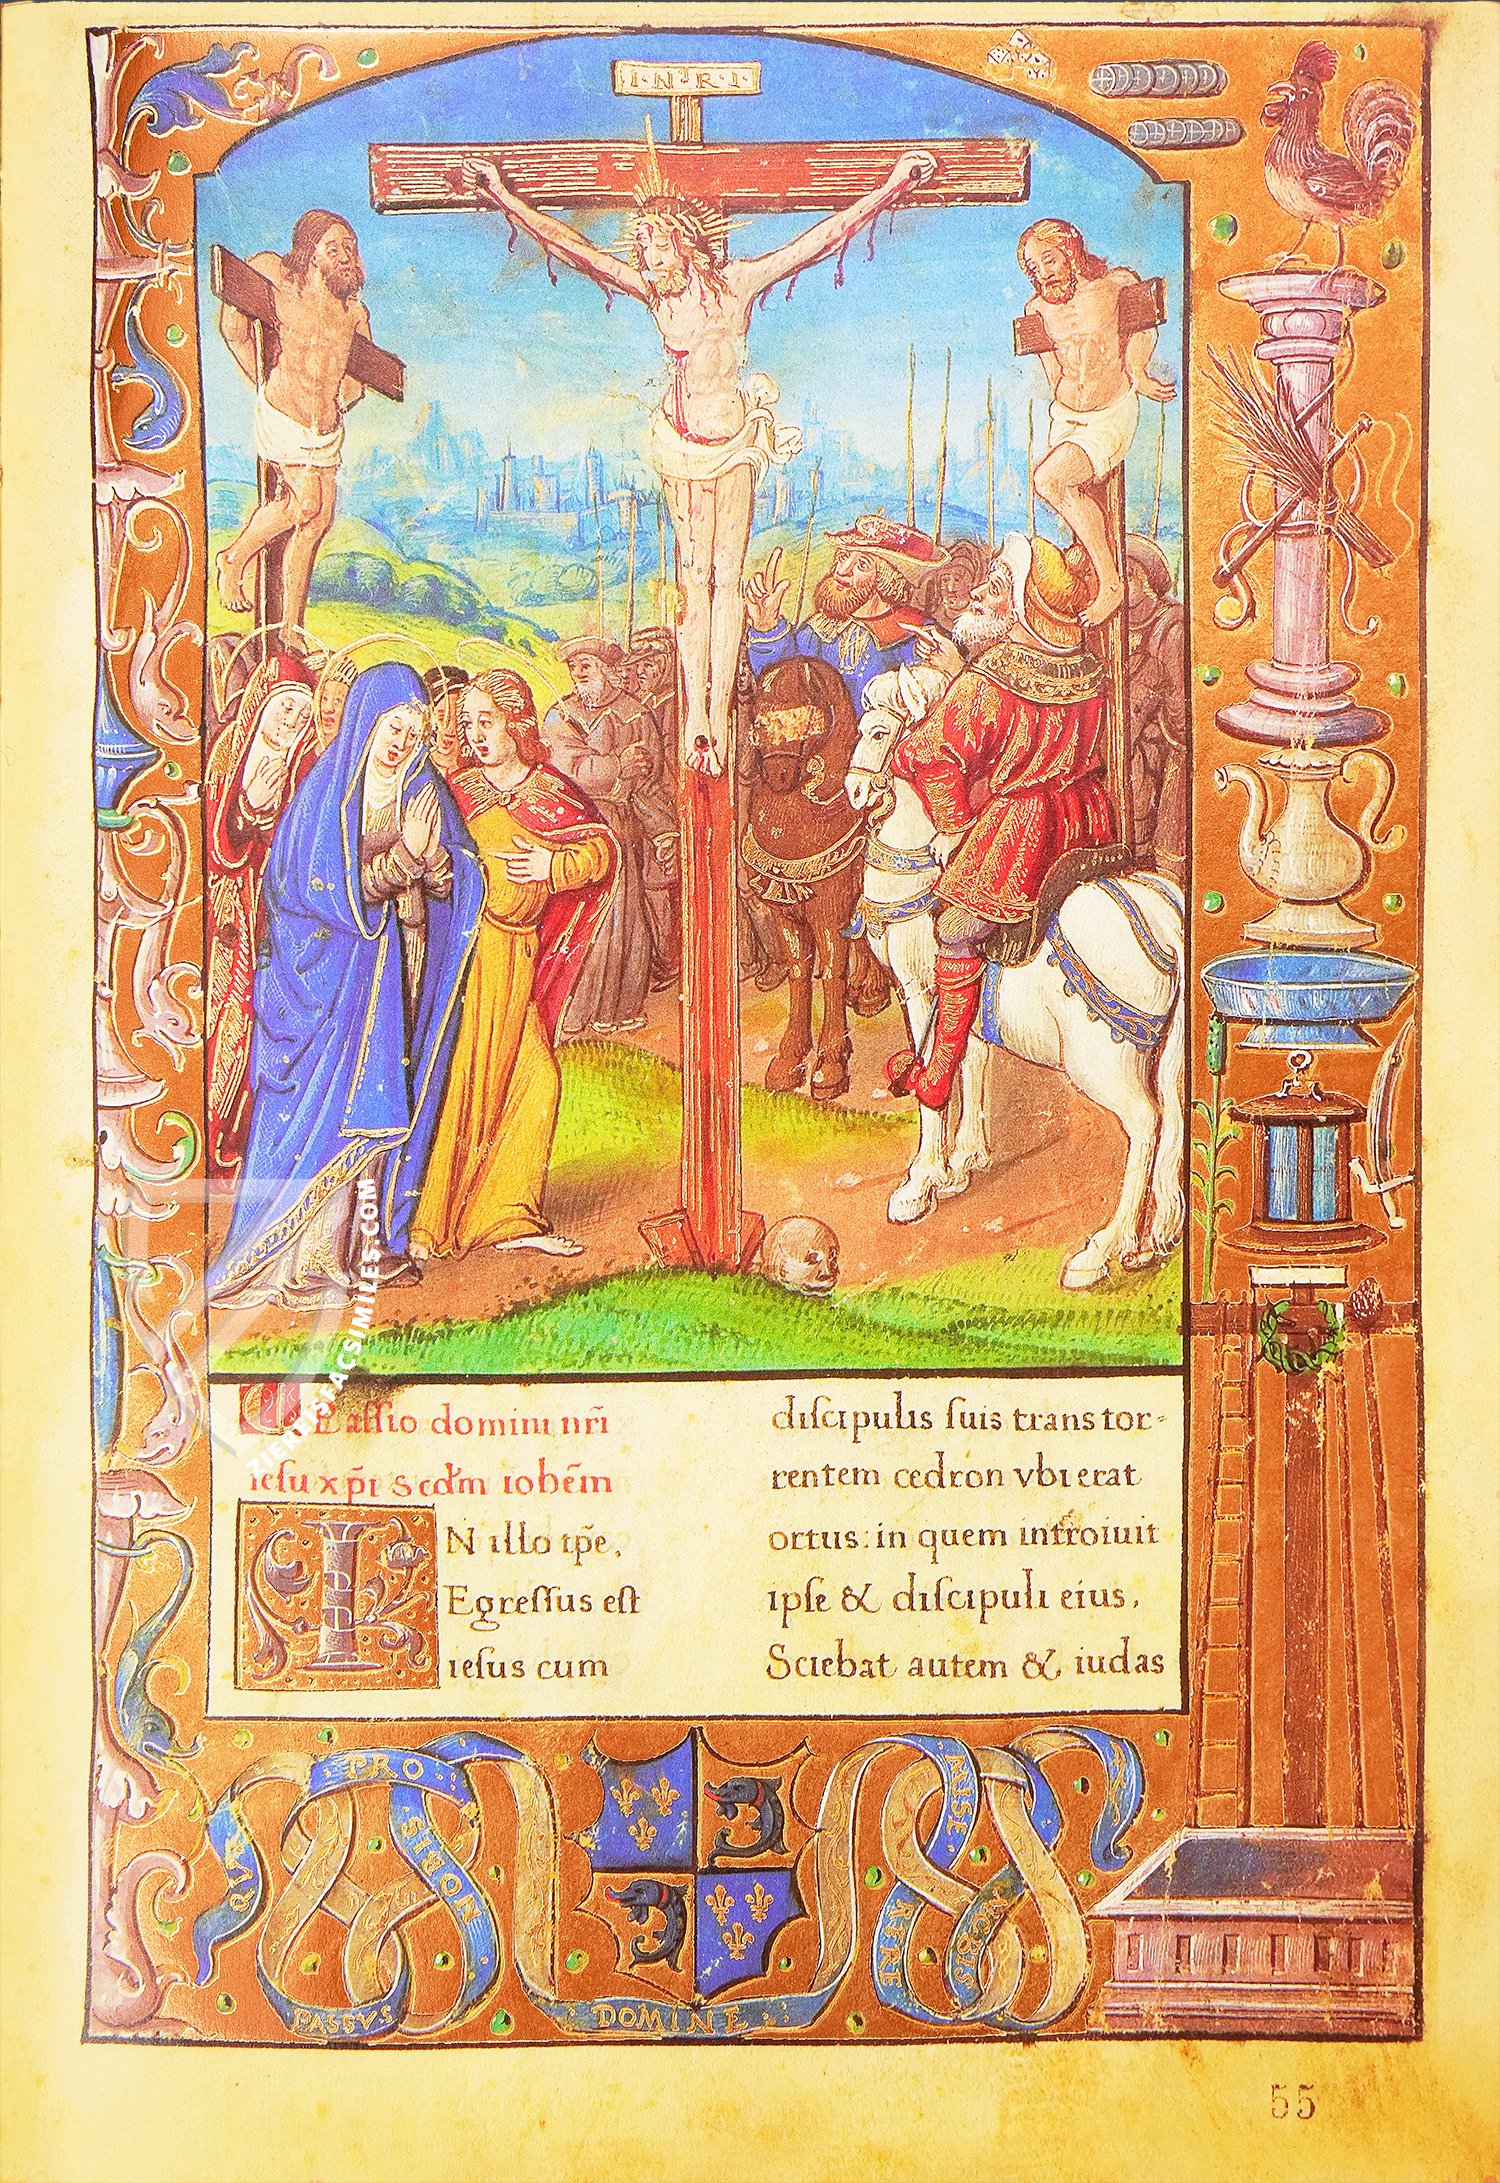 ·I·N·R·I·
Passio domini nr̄i
iesu xp̄i scd̄m iohēm
IN illo tp̄e,
Egressus est
iesus cum
discipulis suis trans tor-
rentem cedron vbi erat
ortus: in quem introiuit
ipse & discipuli eius,
Sciebat autem & iudas
QVI
PASSVS
PRO
NOBIS
DOMINE
MISE
RERE
NOBIS
55
ZIEREIS FACSIMILES.COM